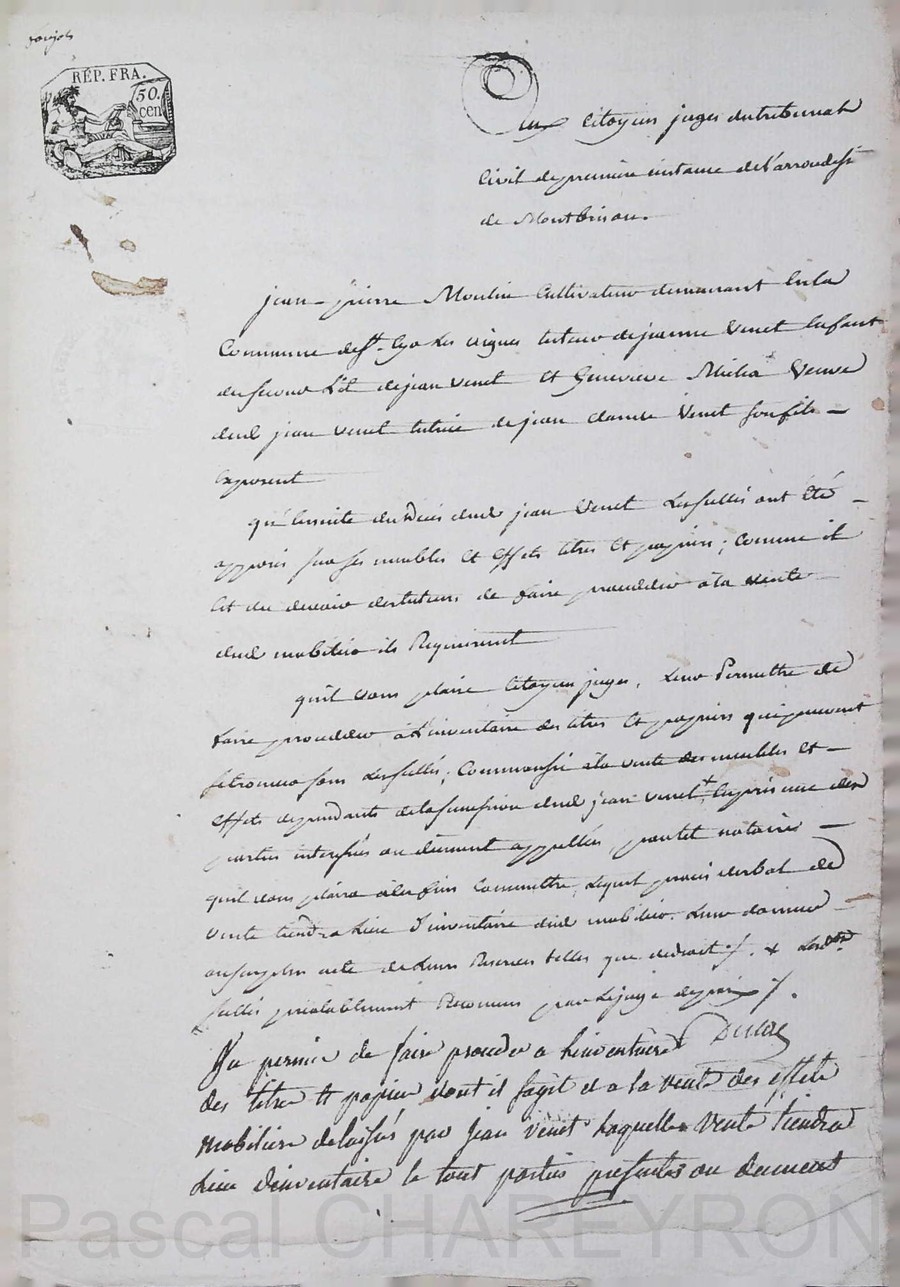 RÉP. FRA.
50.
cen
Aux Citoyens juges du tribunal
Civil de première instance de l'arrondisst
de Montbrison.
jean-pierre Moulin Cultivateur demeurant en la
Commune de st. Cyr les vignes tuteur de jeanne Venet Enfant
du second Lit de jean venet et Genevieve Veuve
dud jean venet tutrice de jean Venet son fils
Exposent
qu'ensuite du décès dud jean Venet Les scellés ont été
apposés sur ses meubles et effets titres et papiers; Comme il
est du devoir des tuteurs de faire proceder à la vente
dud mobilier ils Requierent
qu'il vous plaise Citoyens juges, Leur Permettre de
faire proceder à l'inventaire des titres et papiers qui peuvent
se trouver sous les scellés; Comme aussi à la vente des meubles et
effets dependants de la succession dud jean venet + En présence des
parties interessées ou dûment appellées, par tel notaire
qu'il vous plaira à ces fins Commettre, Lequel procès verbal de
vente tiendra Lieu d'inventaire dud mobilier. Leur donner
au surplus acte de Leurs Reserves telles que de droit ./. + Lesd
scellés préalablement Reconnus par Le juge de paix ./.
Permis de faire proceder a Linventaire
des titre et papier dont il sagit et a la vente des effets
mobiliers delaissés par jean venet Laquelle vente tiendra
Lieu dinventaire le tout parties presentes ou dument
Pascal CHAREYRON